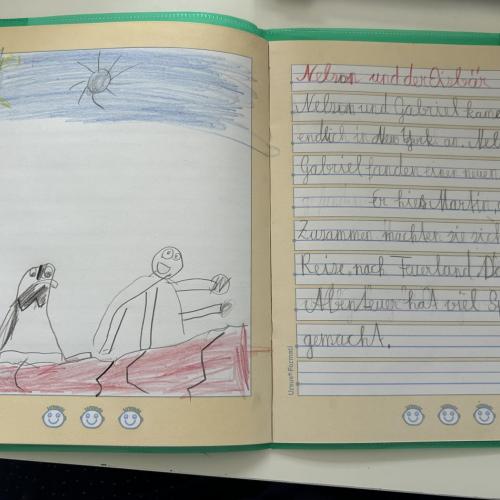 Nelson und der Eisbär
Nelson und Gabriel kame
endlich in New York an. Nel
Gabriel fanden einen neuen
Er hies Martin,
Zusammen machten sie sich
Reise nach Feuerland.
Abenteuer hat viel
gemacht.
Ursus®Format1